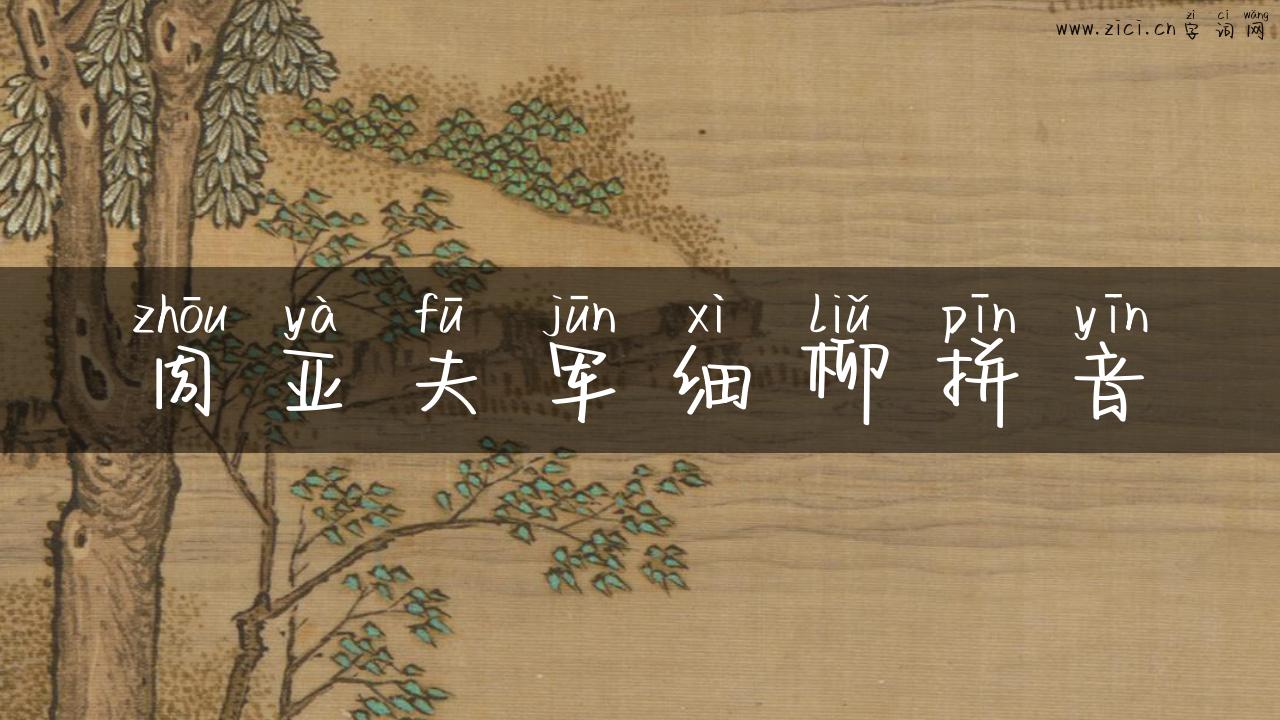 zì cí wǎng
www.zici.cn 字 词 网
zhōu yà fū jūn xì liǔ pīn yīn
周 亚 夫 军 细 柳 拼 音